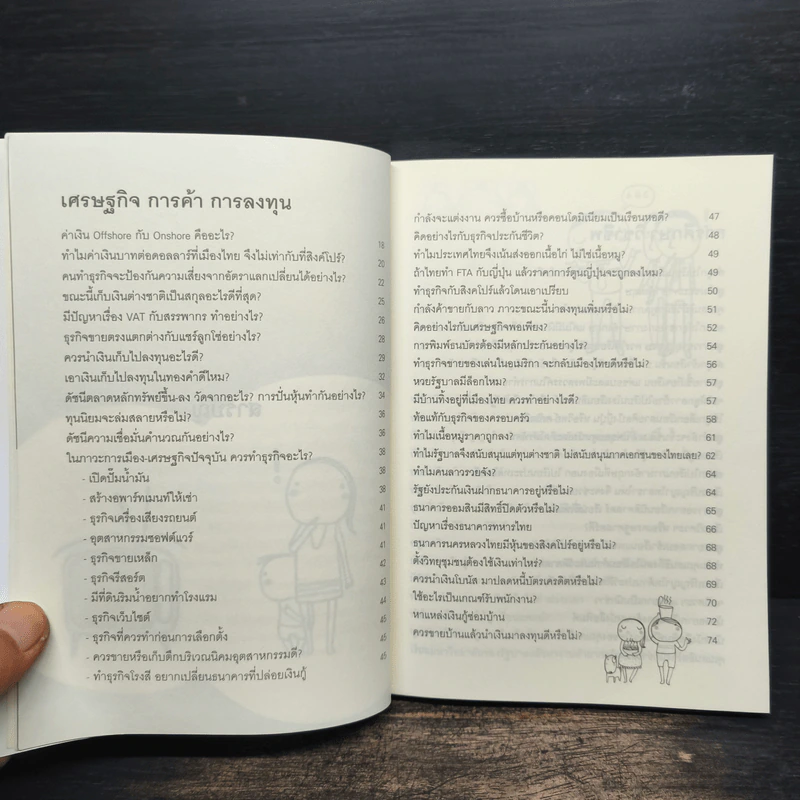 เศรษฐกิจ การค้า การลงทุน
ค่าเงิน Offshore กับ Onshore คืออะไร? 18
ทำไมค่าเงินบาทต่อดอลลาร์ที่เมืองไทย จึงไม่เท่ากับที่สิงคโปร์? 20
คนทำธุรกิจจะป้องกันความเสี่ยงจากอัตราแลกเปลี่ยนได้อย่างไร? 22
ขณะนี้เก็บเงินต่างชาติเป็นสกุลอะไรดีที่สุด? 25
มีปัญหาเรื่อง VAT กับสรรพากร ทำอย่างไร? 26
ธุรกิจขายตรงแตกต่างกับแชร์ลูกโซ่อย่างไร? 28
ควรนำเงินเก็บไปลงทุนอะไรดี? 29
เอาเงินเก็บไปลงทุนในทองคำดีไหม? 32
ดัชนีตลาดหลักทรัพย์ขึ้น-ลง วัดจากอะไร? การปั่นหุ้นทำกันอย่างไร? 34
ทุนนิยมจะล่มสลายหรือไม่? 36
ดัชนีความเชื่อมั่นคำนวณกันอย่างไร? 36
ในภาวะการเมือง-เศรษฐกิจปัจจุบัน ควรทำธุรกิจอะไร? 38
- เปิดปั๊มน้ำมัน 38
- สร้างอพาร์ทเมนท์ให้เช่า 38
- ธุรกิจเครื่องเสียงรถยนต์ 41
- อุตสาหกรรมซอฟต์แวร์ 41
- ธุรกิจขายเหล็ก 42
- ธุรกิจรีสอร์ต 42
- มีที่ดินริมน้ำอยากทำโรงแรม 44
- ธุรกิจเว็บไซต์ 45
- ธุรกิจที่ควรทำก่อนการเลือกตั้ง 45
- ควรขายหรือเก็บตึกบริเวณนิคมอุตสาหกรรมดี? 45
- ทำธุรกิจโรงสี อยากเปลี่ยนธนาคารที่ปล่อยเงินกู้
กำลังจะแต่งงาน ควรซื้อบ้านหรือคอนโดมิเนียมเป็นเรือนหอดี? 47
คิดอย่างไรกับธุรกิจประกันชีวิต? 48
ทำไมประเทศไทยจึงเน้นส่งออกเนื้อไก่ ไม่ใช่เนื้อหมู? 49
ถ้าไทยทำ FTA กับญี่ปุ่น แล้วราคาการ์ตูนญี่ปุ่นจะถูกลงไหม? 49
ทำธุรกิจกับสิงคโปร์แล้วโดนเอาเปรียบ 50
กำลังค้าขายกับลาว ภาวะขณะนี้น่าลงทุนเพิ่มหรือไม่? 51
คิดอย่างไรกับเศรษฐกิจพอเพียง? 52
การพิมพ์ธนบัตรต้องมีหลักประกันอย่างไร? 54
ทำธุรกิจขายของเล่นในอเมริกา จะกลับเมืองไทยดีหรือไม่? 56
หวยรัฐบาลมีล็อกไหม? 57
มีบ้านทิ้งอยู่ที่เมืองไทย ควรทำอย่างไรดี? 57
ท้อแท้กับธุรกิจของครอบครัว 58
ทำไมเนื้อหมูราคาถูกลง? 61
ทำไมรัฐบาลจึงสนับสนุนแต่ทุนต่างชาติ ไม่สนับสนุนภาคเอกชนของไทยเลย? 62
ทำไมคนลาวรวยจัง? 64
รัฐยังประกันเงินฝากธนาคารอยู่หรือไม่? 64
ธนาคารออมสินมีสิทธิ์ปิดตัวหรือไม่? 65
ปัญหาเรื่องธนาคารทหารไทย 66
ธนาคารนครหลวงไทยมีหุ้นของสิงคโปร์อยู่หรือไม่? 68
ตั้งวิทยุชุมชนต้องใช้เงินเท่าไหร่? 68
ควรนำเงินโบนัส มาปลดหนี้บัตรเครดิตหรือไม่? 69
ใช้อะไรเป็นเกณฑ์รับพนักงาน? 70
หาแหล่งเงินกู้ซ่อมบ้าน 72
ควรขายบ้านแล้วนำเงินมาลงทุนดีหรือไม่? 74